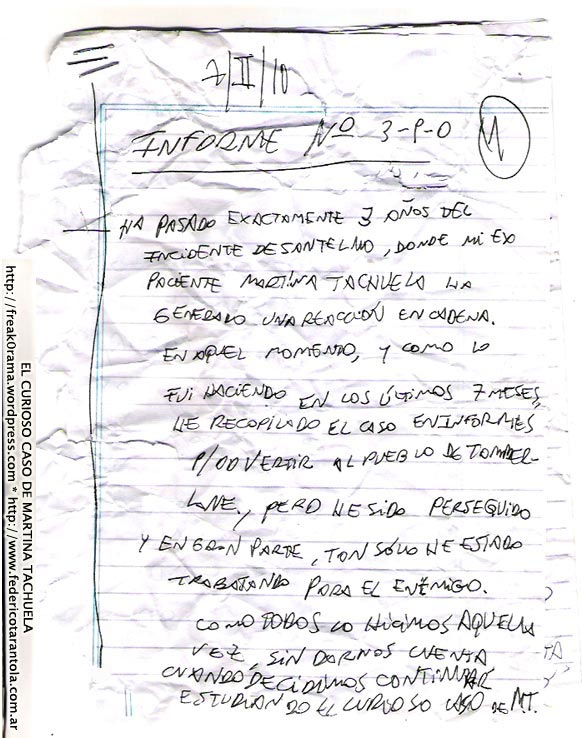 7/II/10
INFORME Nº 3-P-0
M
HA PASADO EXACTAMENTE 3 AÑOS DEL
INCIDENTE DE SANTELMO, DONDE MI EX
PACIENTE MARTINA TACHUELA HA
GENERADO UNA REACCIÓN EN CADENA.
EN AQUEL MOMENTO, Y COMO LO
FUI HACIENDO EN LOS ÚLTIMOS 7 MESES,
HE RECOPILADO EL CASO EN INFORMES
P/ADVERTIR AL PUEBLO DE TAMBER-
LANE, PERO HE SIDO PERSEGUIDO
Y EN GRAN PARTE, TAN SÓLO HE ESTADO
TRABAJANDO PARA EL ENEMIGO.
COMO TODOS LO HICIMOS AQUELLA
VEZ, SIN DARNOS CUENTA
CUANDO DECIDIMOS CONTINUAR
ESTUDIANDO EL CURIOSO CASO DE M.T.
EL CURIOSO CASO DE MARTINA TACHUELA
http://freak0rama.wordpress.com * http://www.federicotarantola.com.ar